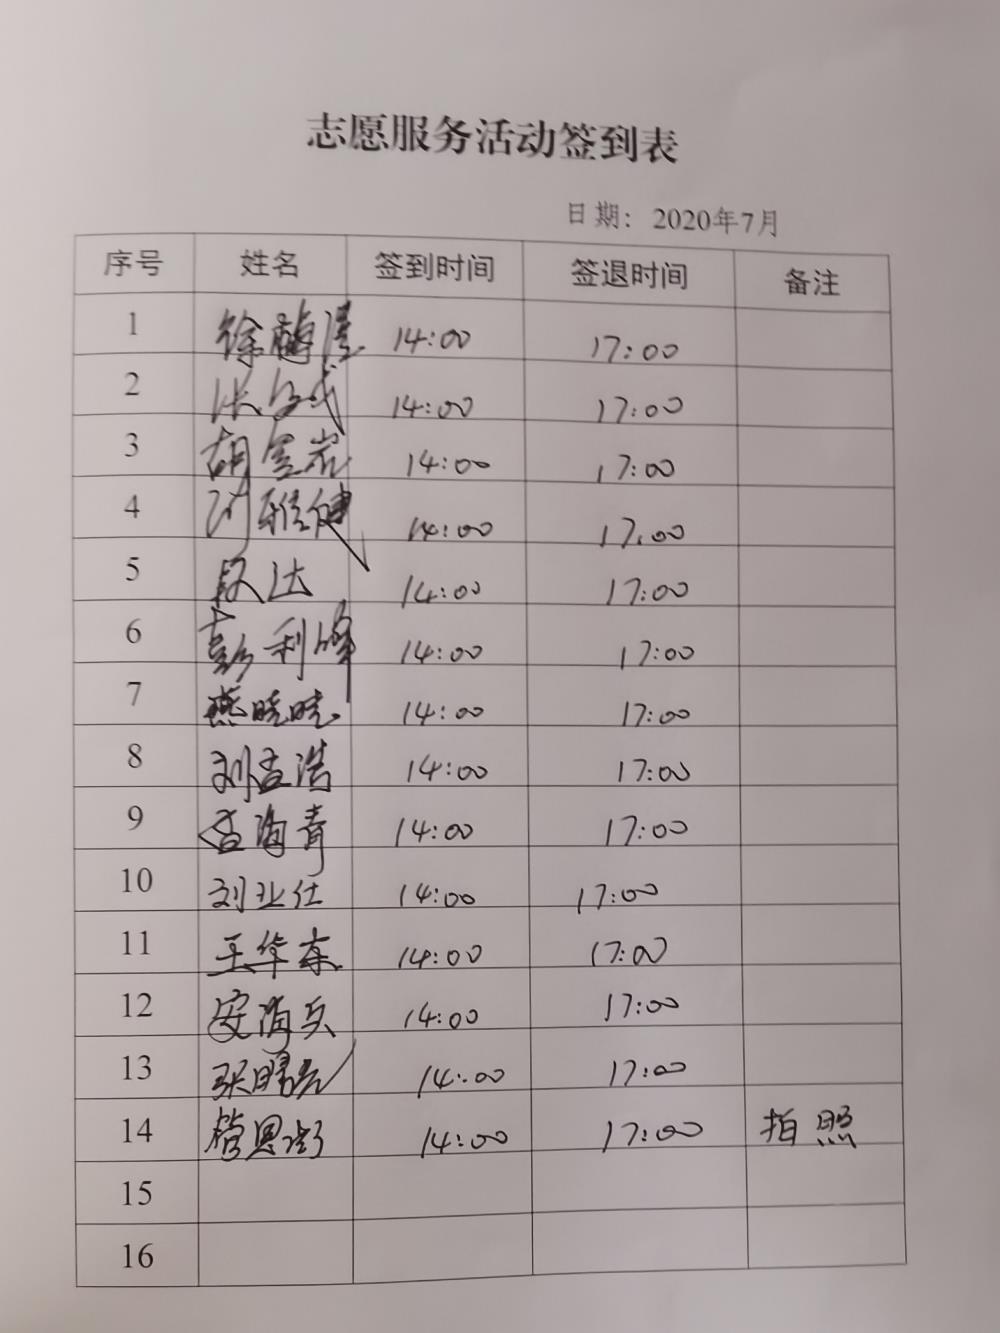 志愿服务活动签到表
日期：2020年7月
序号 姓名 签到时间 签退时间 备注
1 徐 14:00 17:00
2 14:00 17:00
3 胡 14:00 17:00
4 14:00 17:00
5 段达 14:00 17:00
6 彭利峰 14:00 17:00
7 燕晓晓 14:00 17:00
8 刘孟浩 14:00 17:00
9 李海青 14:00 17:00
10 刘业仕 14:00 17:00
11 王华东 14:00 17:00
12 安海兵 14:00 17:00
13 张 14:00 17:00
14 管恩 14:00 17:00 拍照
15
16